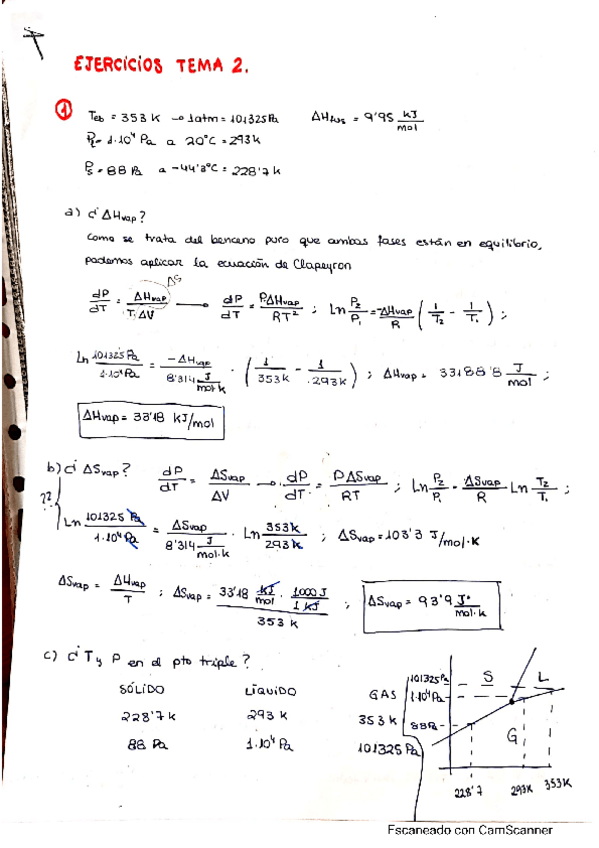 EJERCICIOS TEMA 2.
① Teb = 353 K → 1atm = 101325 Pa ΔHfus = 9'95 kJ/mol
Pl = 1·10⁴ Pa a 20°C = 293 K
Ps = 88 Pa a -44'3°C = 228'7 K
a) ¿ΔHvap?
Como se trata del benceno puro que ambas fases están en equilibrio,
podemos aplicar la ecuación de Clapeyron
ΔS
dP/dT = ΔHvap/T·ΔV → dP/dT = PΔHvap/RT² ; Ln P₂/P₁ = -ΔHvap/R (1/T₂ - 1/T₁) ;
Ln 101325 Pa/1·10⁴ Pa = -ΔHvap/8'314 J/mol·K · (1/353K - 1/293K) ; ΔHvap = 33188'8 J/mol ;
ΔHvap = 33'18 kJ/mol
b) ¿ΔSvap? dP/dT = ΔSvap/ΔV → dP/dT = PΔSvap/RT ; Ln P₂/P₁ = ΔSvap/R Ln T₂/T₁ ;
??
Ln 101325 Pa/1·10⁴ Pa = ΔSvap/8'314 J/mol·K · Ln 353K/293K ; ΔSvap = 103'3 J/mol·K
ΔSvap = ΔHvap/T ; ΔSvap = 33'18 kJ/mol · 1000 J/1 kJ / 353 K ; ΔSvap = 93'9 J/mol·K
c) ¿T y P en el pto triple?
SÓLIDO LÍQUIDO GAS
228'7 K 293 K 353 K
88 Pa 1·10⁴ Pa 101325 Pa
101325 Pa S L
1·10⁴ Pa
88 Pa
G
228'7 293K 353K
Escaneado con CamScanner